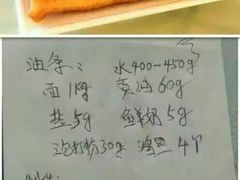 油条: 水400-450g
面1kg 黄油60g
盐5g 鲜奶5g
泡打粉30g 鸡蛋4个